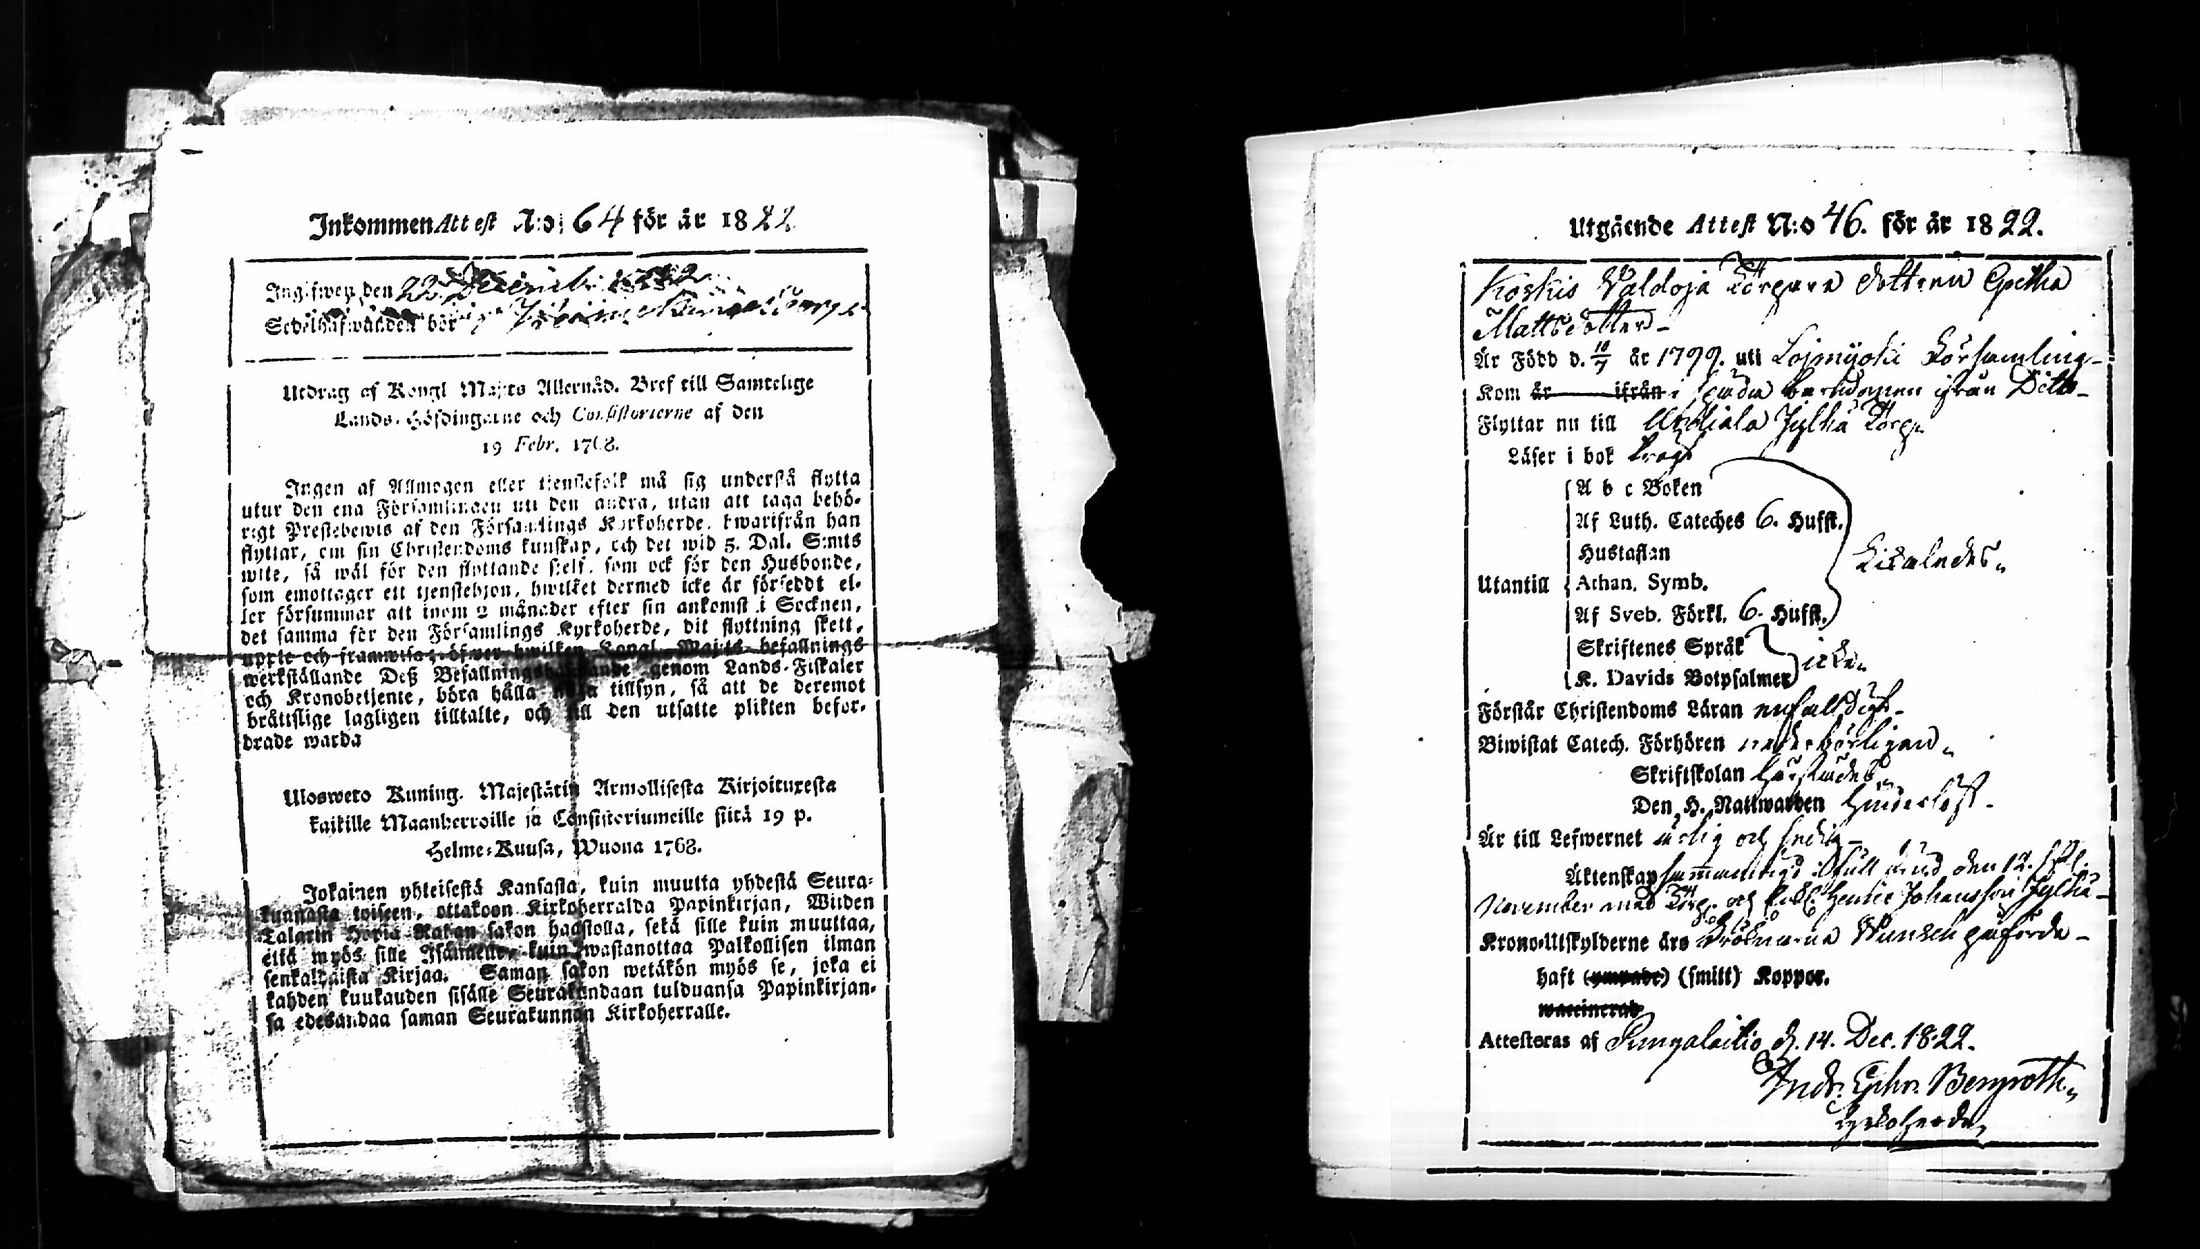 Inkommen Attest N:o 64 för år 1822
Ingifwen den 22 Decemb: 1822
Sedelhafwanden bör
Utdrag af Kongl Maj:ts Allernåd. Bref till Samtelige
Lands-Höfdingarne och Consistorierne af den
19 Febr. 1768.
Ingen af Allmogen eller tjenstefolk må sig understå flytta
utur den ena Församlingen uti den andra, utan att taga behö-
rigt Prestebewis af den Församlings Kyrkoherde, hwarifrån han
flyttar, om sin Christendoms kunskap, och det wid 5. Dal. S:mts
wite, så wäl för den flyttande sjelf, som ock för den Husbonde,
som emottager ett tjenstehjon, hwilket dermed icke är försedt el-
ler försummar att inom 2 månader efter sin ankomst i Socknen,
det samma för den Församlings Kyrkoherde, dit flyttning skett,
upte och framwisa; öfwer hwilken Kongl. Maj:ts befallnings
werkställande Deß Befallningshafwande genom Lands-Fiskaler
och Kronobetjente, böra hålla noga tillsyn, så att de deremot
bråttslige lagligen tilltalte, och till den utsatte plikten befor-
drade warda
Ulosweto Kuning. Majestätin Armollisesta Kirjoituxesta
kaikille Maanherroille ja Consistoriumeille siitä 19 p.
Helme-Kuusa, Wuona 1768.
Jokainen yhteisestä Kansasta, kuin muutta yhdestä Seura-
kunnasta toiseen, ottakoon Kirkoherralda Papinkirjan, Wiiden
Talarin Hopia Rahan sakon haastolla, sekä sille kuin muuttaa,
että myös sille Isännelle, kuin wastanottaa Palkollisen ilman
senkaldaista Kirjaa. Saman sakon wetäkön myös se, joka ei
kahden kuukauden sisälle Seurakundaan tulduansa Papinkirjan-
sa edesandaa saman Seurakunnan Kirkoherralle.
Utgående Attest N:o 46. för år 1822.
Koskis Valdoja Torpare dottern Gretha
Mattsdotter-
Är Född d. 10/7 år 1799. uti Loimijoki Församling-
Kom år ifrån i späda barndomen ifrån Ditto-
Flyttar nu till Urdiala Jylhä Torp
Läser i bok trögt
A b c Boken
Af Luth. Cateches 6. Hufst.
Hustaflan
Utantill Athan. Symb.
Af Sveb. Förkl. 6. Hufst.
Likaledes
Skriftenes Språk
K. Davids Botpsalmer
icke
Förstår Christendoms Läran enfalldigt-
Biwistat Catech. Förhören wederbörligen
Skriftskolan
Den H. Nattwarden Hinderlöst-
Är till Lefwernet ärlig och fredig-
Äktenskap den 12.
November med Torp. och Henric Johansson Jylhä-
Kronoutskylderne äro påförde-
haft (ympade) (smitt) Koppor.
waccinerad
Attesteras af Pungalaitio d. 14. Dec. 1822.
Andr. Ephr. Bergroth
Kyrkoherde